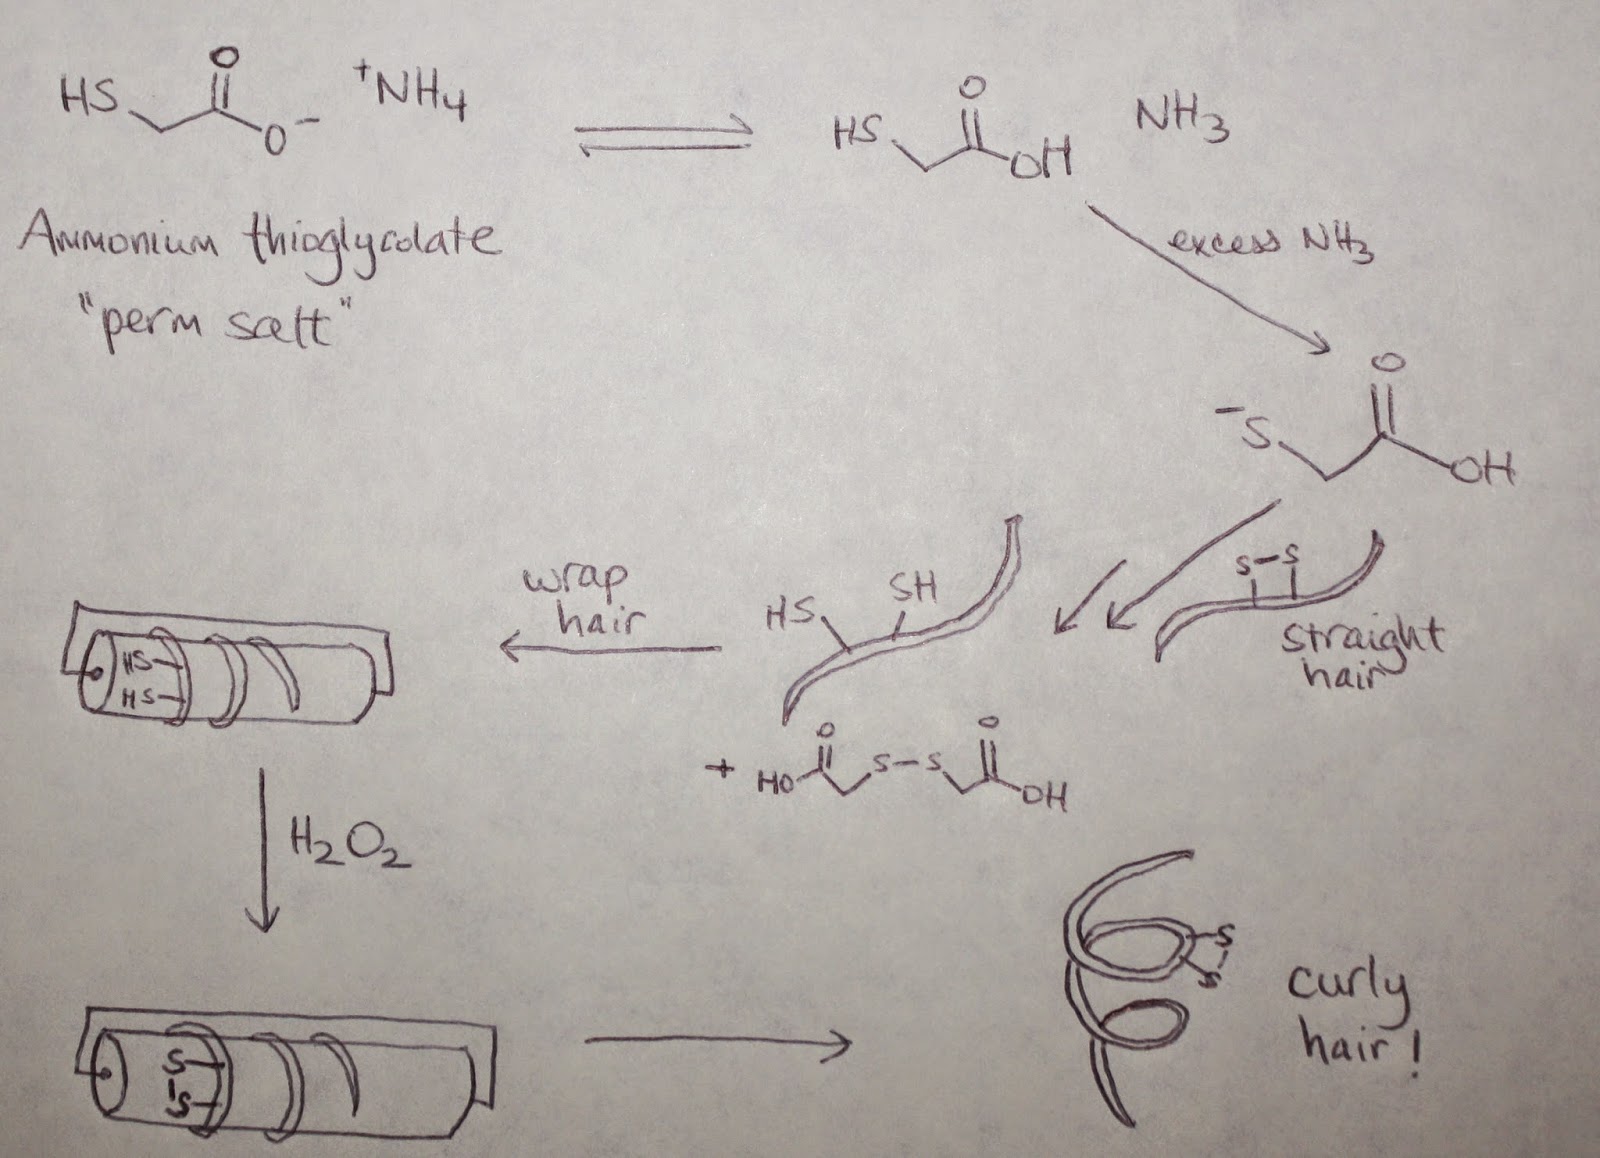 HS O O- +NH4
Ammonium thioglycolate
"perm salt"
HS O OH NH3
excess NH3
-S O OH
S-S
straight
hair
HS SH
+ HO O S-S O OH
wrap
hair
HS
HS
H2O2
S
S
S
S
curly
hair!